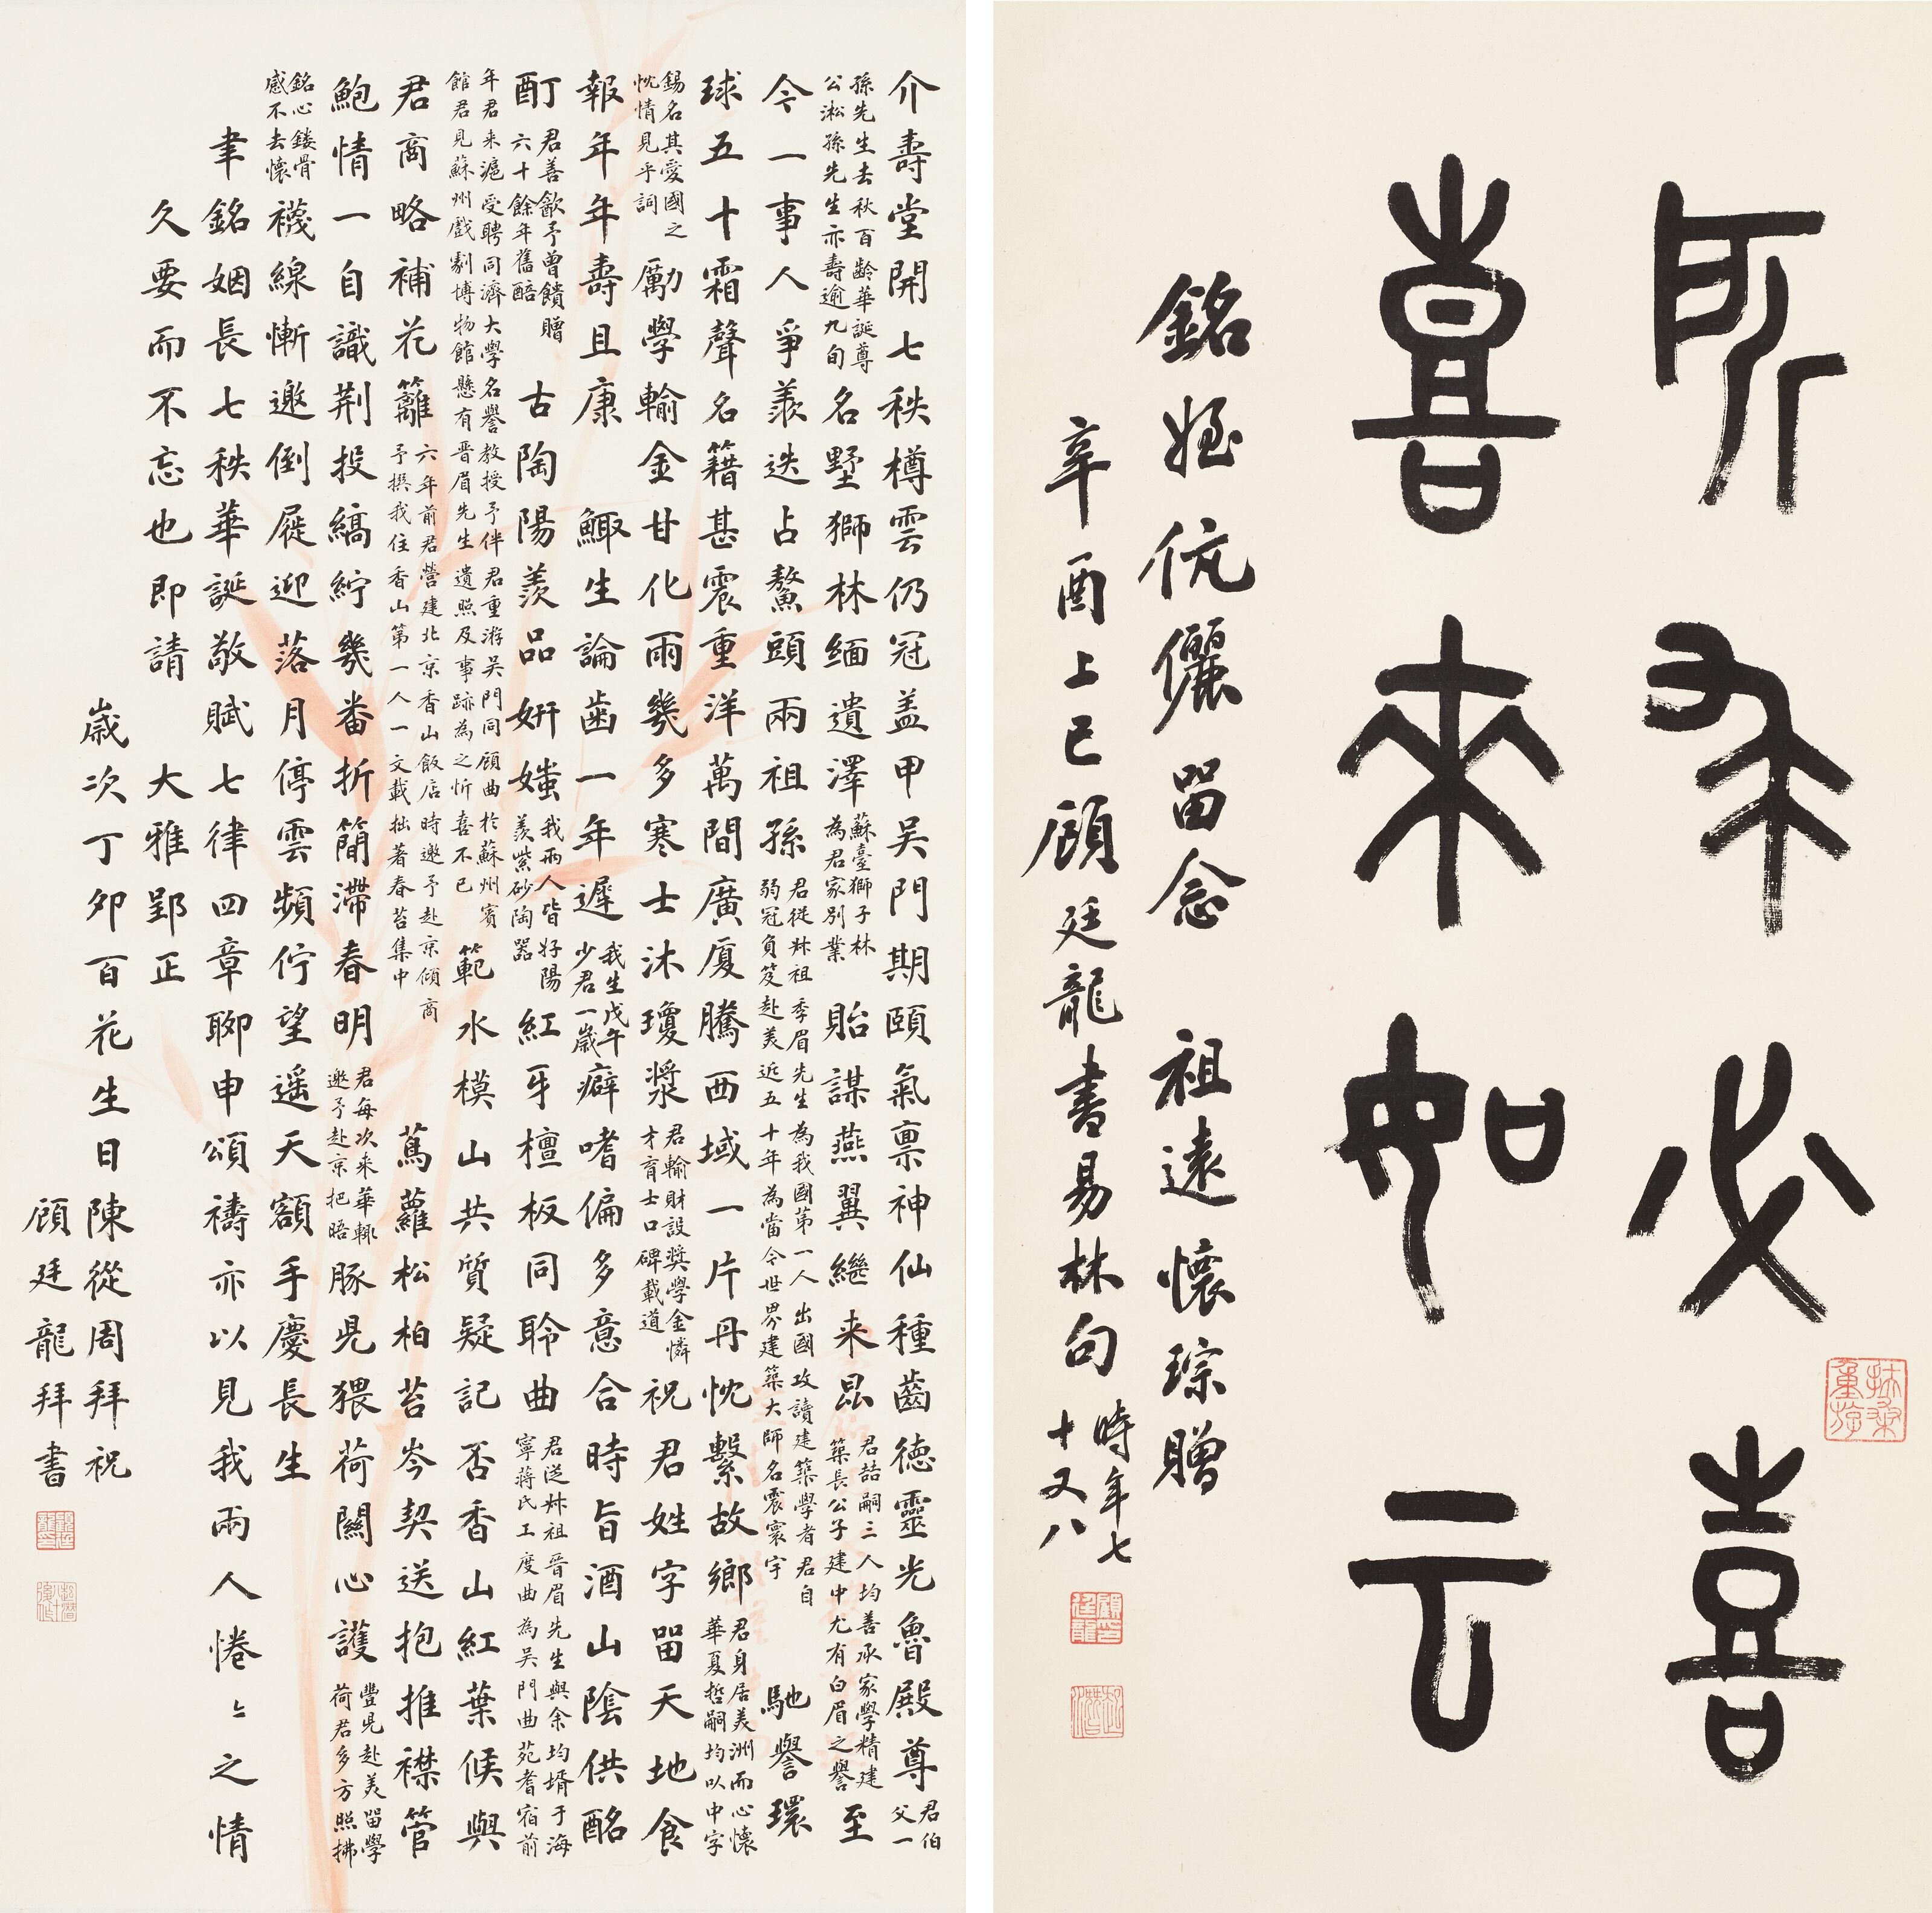 所求必喜
喜來如云
銘姪伉儷留念 祖遠懷琮贈
辛酉上巳顧廷龍書易林句 時年七十又八
扶桑重游
介壽堂開七秩樽雲仍冠盖甲吴門期頤氣禀神仙種齒德靈光魯殿尊 君伯父一
孫先生去秋百齡華誕尊公淞孫先生亦壽逾九旬 名墅獅林緬遺澤 蘇臺獅子林為君家别業 貽謀燕翼繼来昆 君喆嗣三人均善承家學精建築長公子建中尤有白眉之譽 至
今一事人爭羡迭占鰲頭兩祖孫 君從叔祖季眉先生為我國第一人出國攻讀建築學者君自弱冠負笈赴美近五十年為當今世界建築大師名震寰宇 馳譽環
球五十霜聲名籍甚震重洋萬間廣廈騰西域一片丹忱繫故鄉 君身居美洲而心懷華夏哲嗣均以中字
錫名其愛國之忱情見乎詞 勵學輸金甘化雨幾多寒士沐瓊漿 君輸財設奬學金憐才育士口碑載道 祝君姓字留天地食
報年年壽且康 鯫生論齒一年遲 我生戊午少君一歲 癖嗜偏多意合時旨酒山陰供酩
酊 君善飲予曾饋贈六十餘年舊醅 古陶陽羡品妍媸 我兩人皆好陽羡紫砂陶器 紅牙檀板同聆曲 君從叔祖晋眉先生與余均壻于海寧蔣氏工度曲為吴門曲苑耆宿前
年君来滬受聘同濟大學名譽教授予伴君重游吴門同顧曲於蘇州賓館君見蘇州戲劇博物館懸有晋眉先生遺照及事跡為之忻喜不已 範水模山共質疑記否香山紅葉候與
君商略補花籬 六年前君營建北京香山飯店時邀予赴京傾商予撰我住香山第一人一文載拙著春苔集中 蔦蘿松柏苔岑契送抱推襟管
鮑情一自識荆投縞紵幾番折簡滯春明 君每次来華輒邀予赴京把晤 豚兒猥荷關心護 豐兒赴美留學荷君多方照拂
銘心鏤骨感不去懷 襪線慚邀倒屣迎落月停雲頻佇望遥天額手慶長生
聿銘姻長七秩華誕敬賦七律四章聊申頌禱亦以見我兩人惓〻之情
久要而不忘也即請 大雅郢正
歲次丁卯百花生日陳從周拜祝
顧廷龍拜書